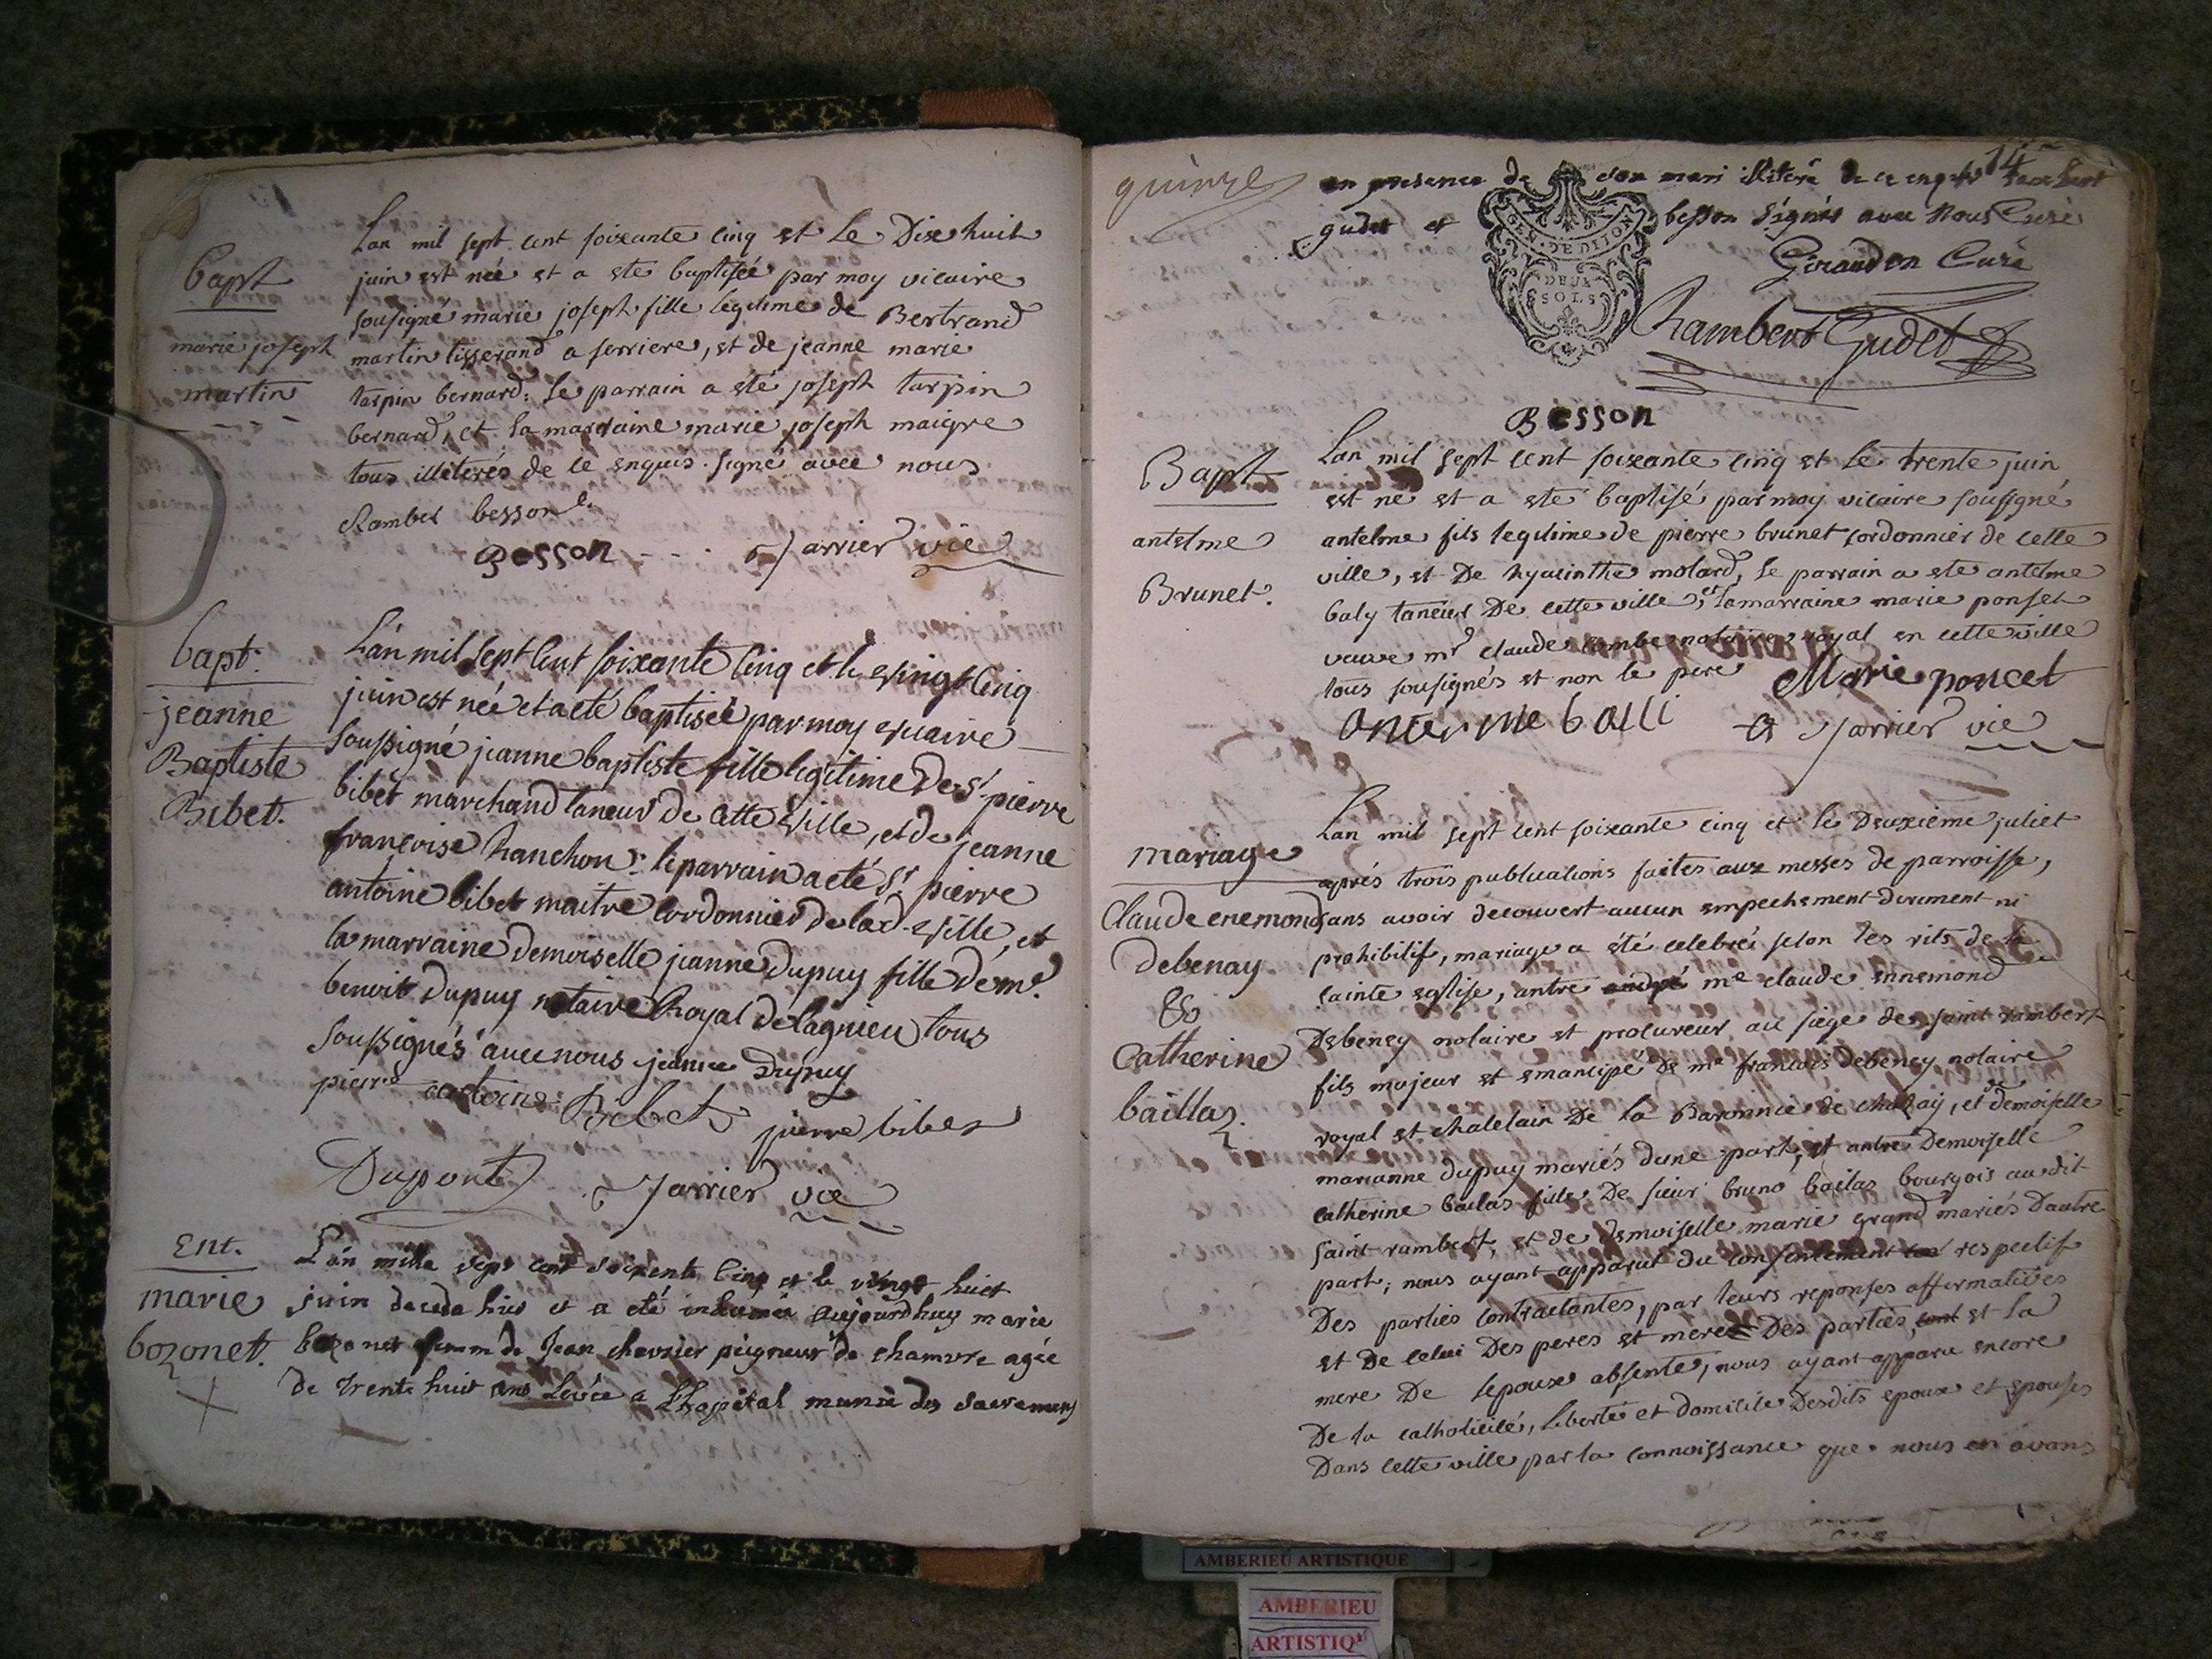 Bapt
marie joseph
martin
Lan mil sept cent soixante cinq et le Dixe huit
juin est née et a ete baptisée par moy vicaire
sousigné marie joseph fille legitime de Bertrand
martin tisserand a serriere, et de jeanne marie
tarpin bernard. le parrain a eté joseph tarpin
bernard, et la marraine marie joseph maigre
tous illiterés de ce enquis. signé avec nous
Rambet besson
Besson Jarrier vic
bapt.
jeanne
Baptiste
Bibet.
L'an mil sept cent soixante cinq et le vingt cinq
juin est née et a eté baptisée par moy vicaire
soussigné jeanne baptiste fille legitime de Sr. pierre
bibet marchand taneur de cette ville, et de jeanne
françoise hanchon: le parrain a eté Sr. pierre
antoine bibet maitre cordonnier de lad. ville, et
la marraine demoiselle jeanne Dupuy fille de me.
benoit Dupuy notaire Royal de lagnieu tous
soussignés avec nous jeanne Dupuy
pierre antoine Bibet pierre bibet
Dupont Jarrier vic
Ent.
marie
bozonet.
L'an mille sept cent soixente cinq et le vingt huit
juin decede hier et a eté inhumée aujourdhuy marie
bozonet femme de Jean chevrier peigneur de chamvre agée
de trente huit ans Levée a L'hopital munie des sacremens
quinze
14
en presence de son mari illiteré de ce enquis rambert
gudet et besson signés avec Nous Curé
GEN. DE DIJON
DEUX
SOLS
Giraudon Curé
Rambert Gudet
Besson
Bapt
antelme
Brunet.
Lan mil sept cent soixante cinq et le trente juin
est né et a eté baptisé par moy vicaire soussigné
antelme fils legitime de pierre brunet cordonnier de cette
ville, et De hyacinthe molard, le parrain a ete antelme
baly taneur De cette ville, et la marraine marie ponset
veuve mr claude combe notaire royal en cette ville
tous sousignés et non le pere Marie poncet
antelme balli Jarrier vic
mariage
Claude enemond
debenay
&
Catherine
baillaz.
Lan mil sept cent soixante cinq et le Deuxième juliet
après trois publications faites aux messes de parroisse,
sans avoir decouvert aucun empechement dirument ni
prohibitif, mariage a été celebré selon les rits de la
sainte eglise, antre me claude ennemond
Debeney notaire et procureur au siege de saint rambert
fils majeur et emancipé de me francois debeney notaire
royal et chatelain De la Baronnie de chazay, et de demoiselle
marianne dupuy mariés dune part, et antre Demoiselle
catherine bailas fille De sieur bruno bailas bourgois audit
saint rambert, et de demoiselle marie grand mariés Dautre
part; nous ayant apparut du consentement respectif
Des parties contractantes, par leurs reponses affirmatives
et De celui Des peres et meres Des parties, et la
mere De lepoux absente, nous ayant apparu encore
De la catholicité, liberté et domicile Desdits epoux et epouse
Dans cette ville par la connoissance que nous en avons
AMBERIEU ARTISTIQUE
AMBERIEU
ARTISTIQ